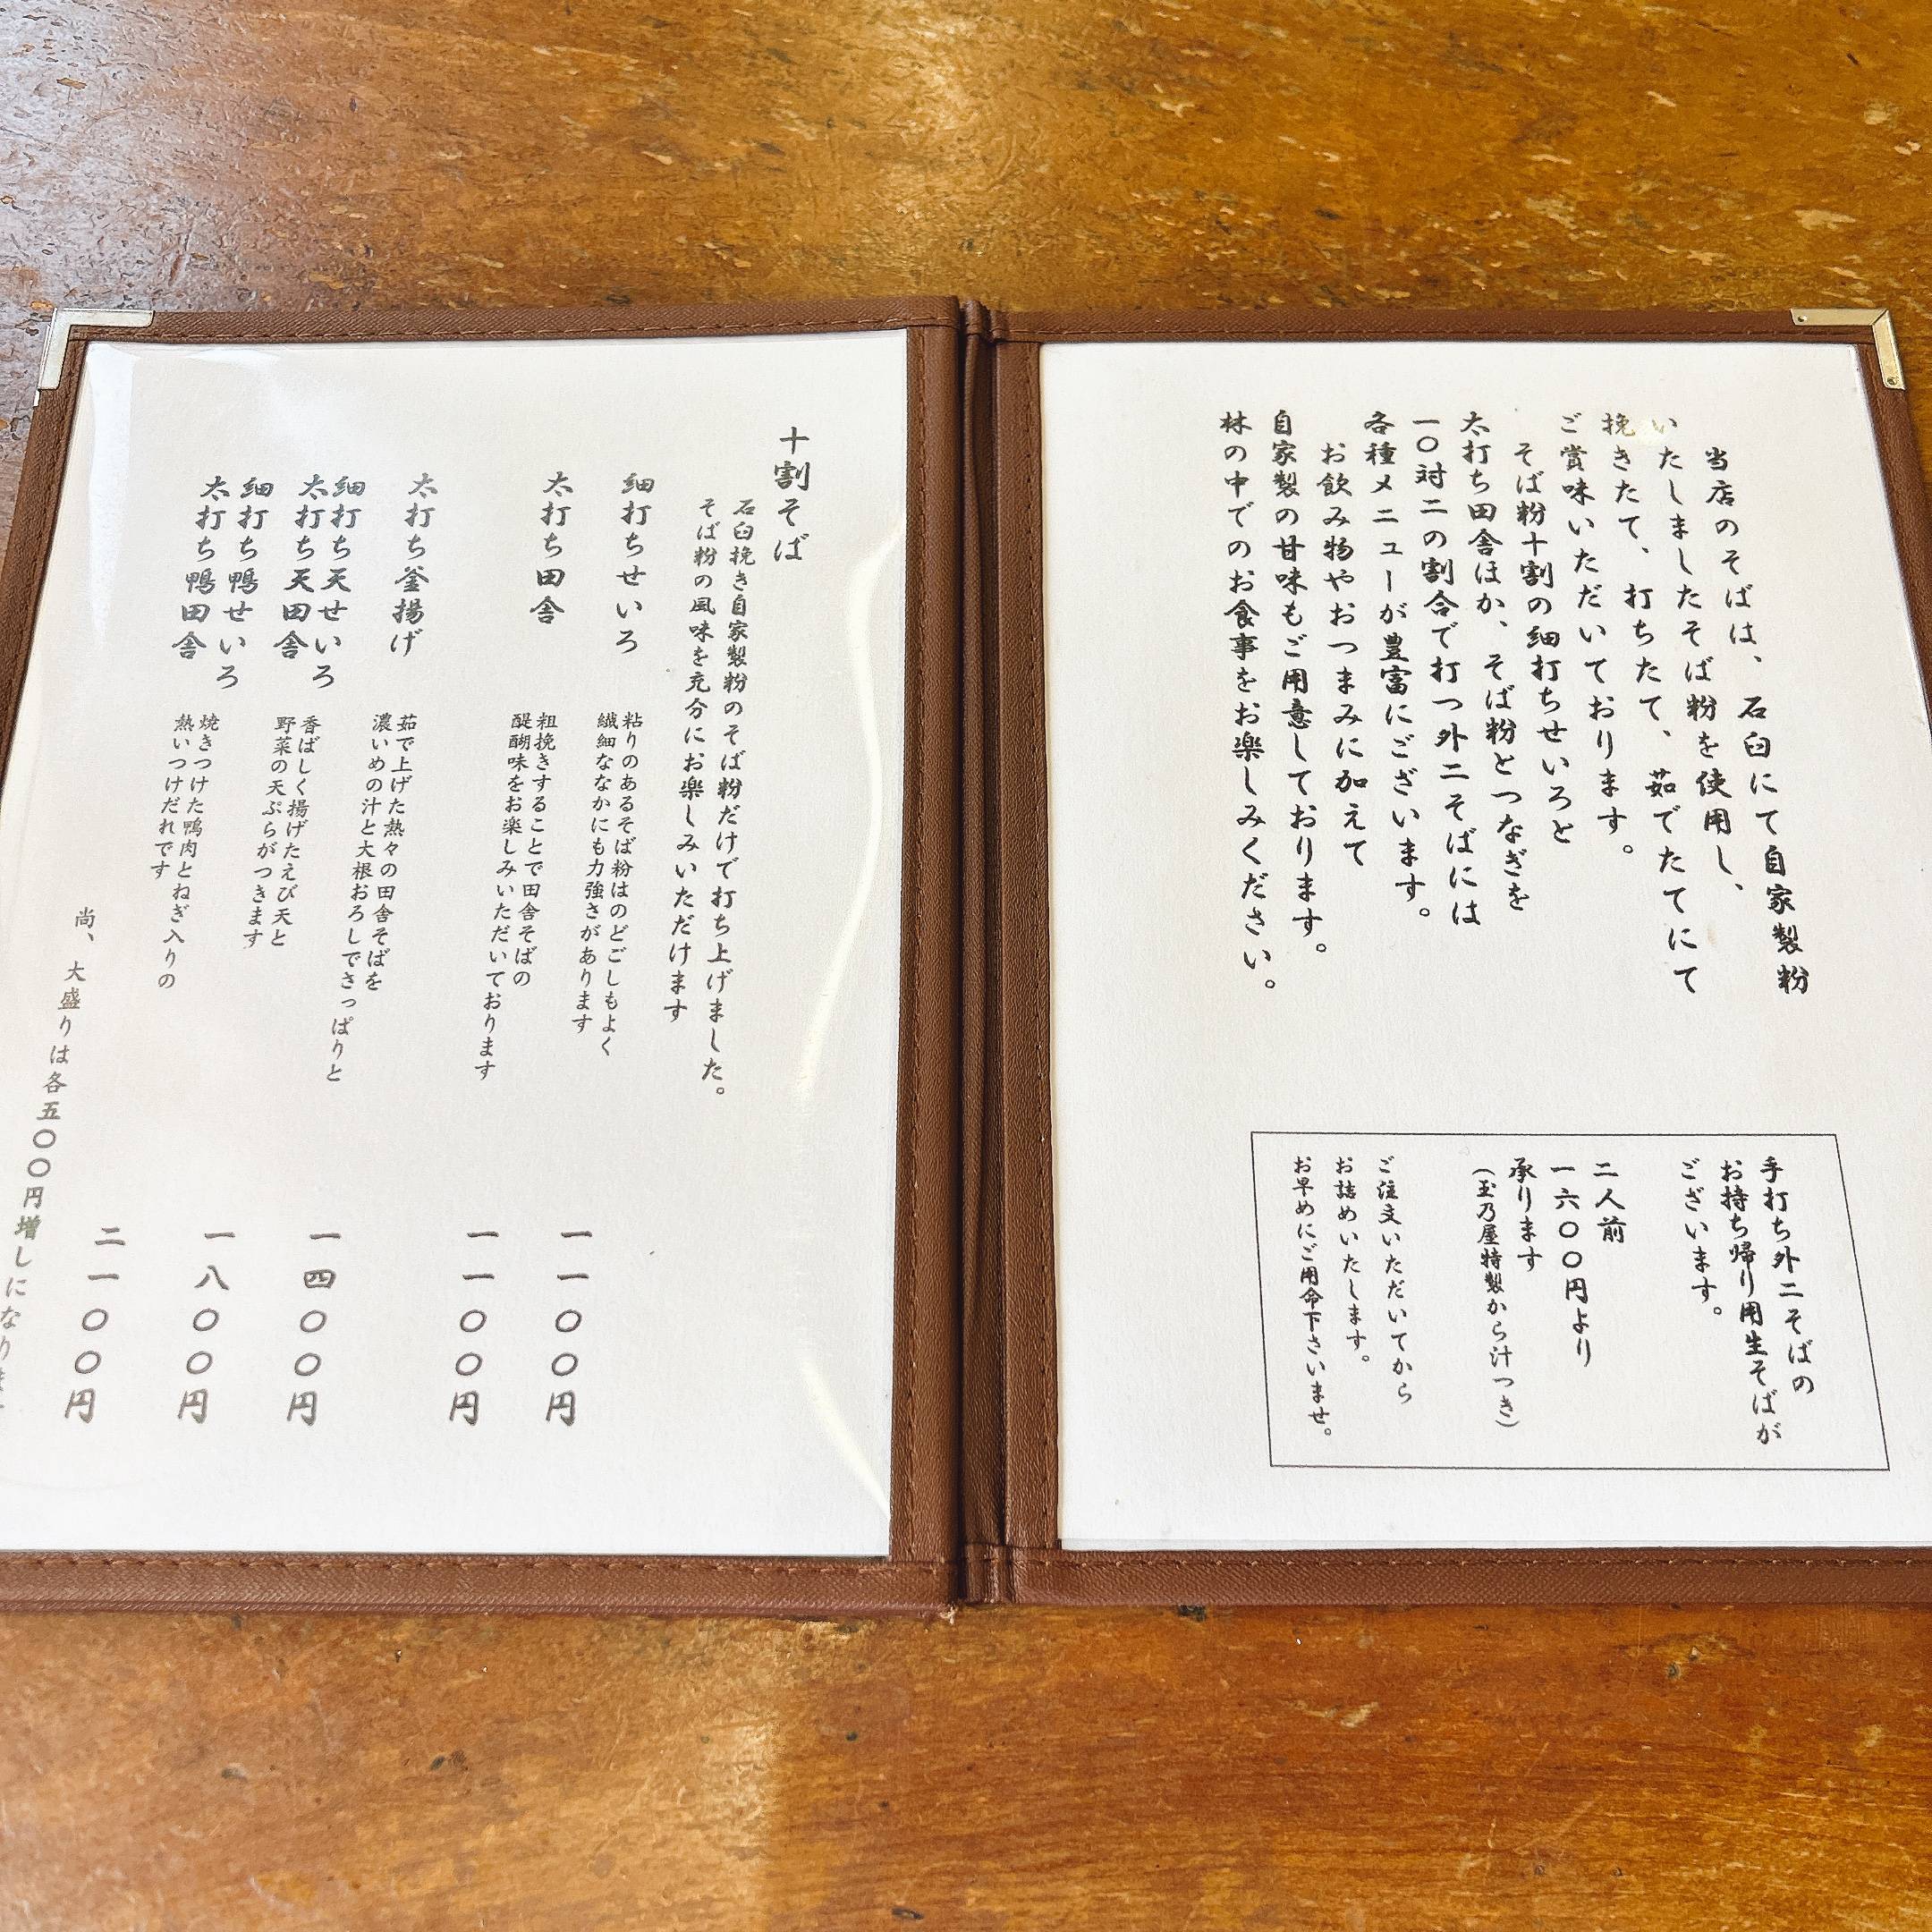 当店のそばは、石臼にて自家製粉
いたしましたそば粉を使用し、
挽きたて、打ちたて、茹でたてにて
ご賞味いただいております。
そば粉十割の細打ちせいろと
太打ち田舎ほか、そば粉とつなぎを
一〇対二の割合で打つ外二そばには
各種メニューが豊富にございます。
お飲み物やおつまみに加えて
自家製の甘味もご用意しております。
林の中でのお食事をお楽しみください。
手打ち外二そばの
お持ち帰り用生そばが
ございます。
二人前
一六〇〇円より
承ります
（玉乃屋特製から汁つき）
ご注文いただいてから
お詰めいたします。
お早めにご用命下さいませ。
十割そば
石臼挽き自家製粉のそば粉だけで打ち上げました。
そば粉の風味を充分にお楽しみいただけます
細打ちせいろ
粘りのあるそば粉はのどごしもよく
繊細ななかにも力強さがあります
一一〇〇円
太打ち田舎
粗挽きすることで田舎そばの
醍醐味をお楽しみいただいております
一一〇〇円
太打ち釜揚げ
茹で上げた熱々の田舎そばを
濃いめの汁と大根おろしでさっぱりと
一四〇〇円
細打ち天せいろ
太打ち天田舎
香ばしく揚げたえび天と
野菜の天ぷらがつきます
一八〇〇円
細打ち鴨せいろ
太打ち鴨田舎
焼きつけた鴨肉とねぎ入りの
熱いつけだれです
二一〇〇円
尚、大盛りは各五〇〇円増しになりま